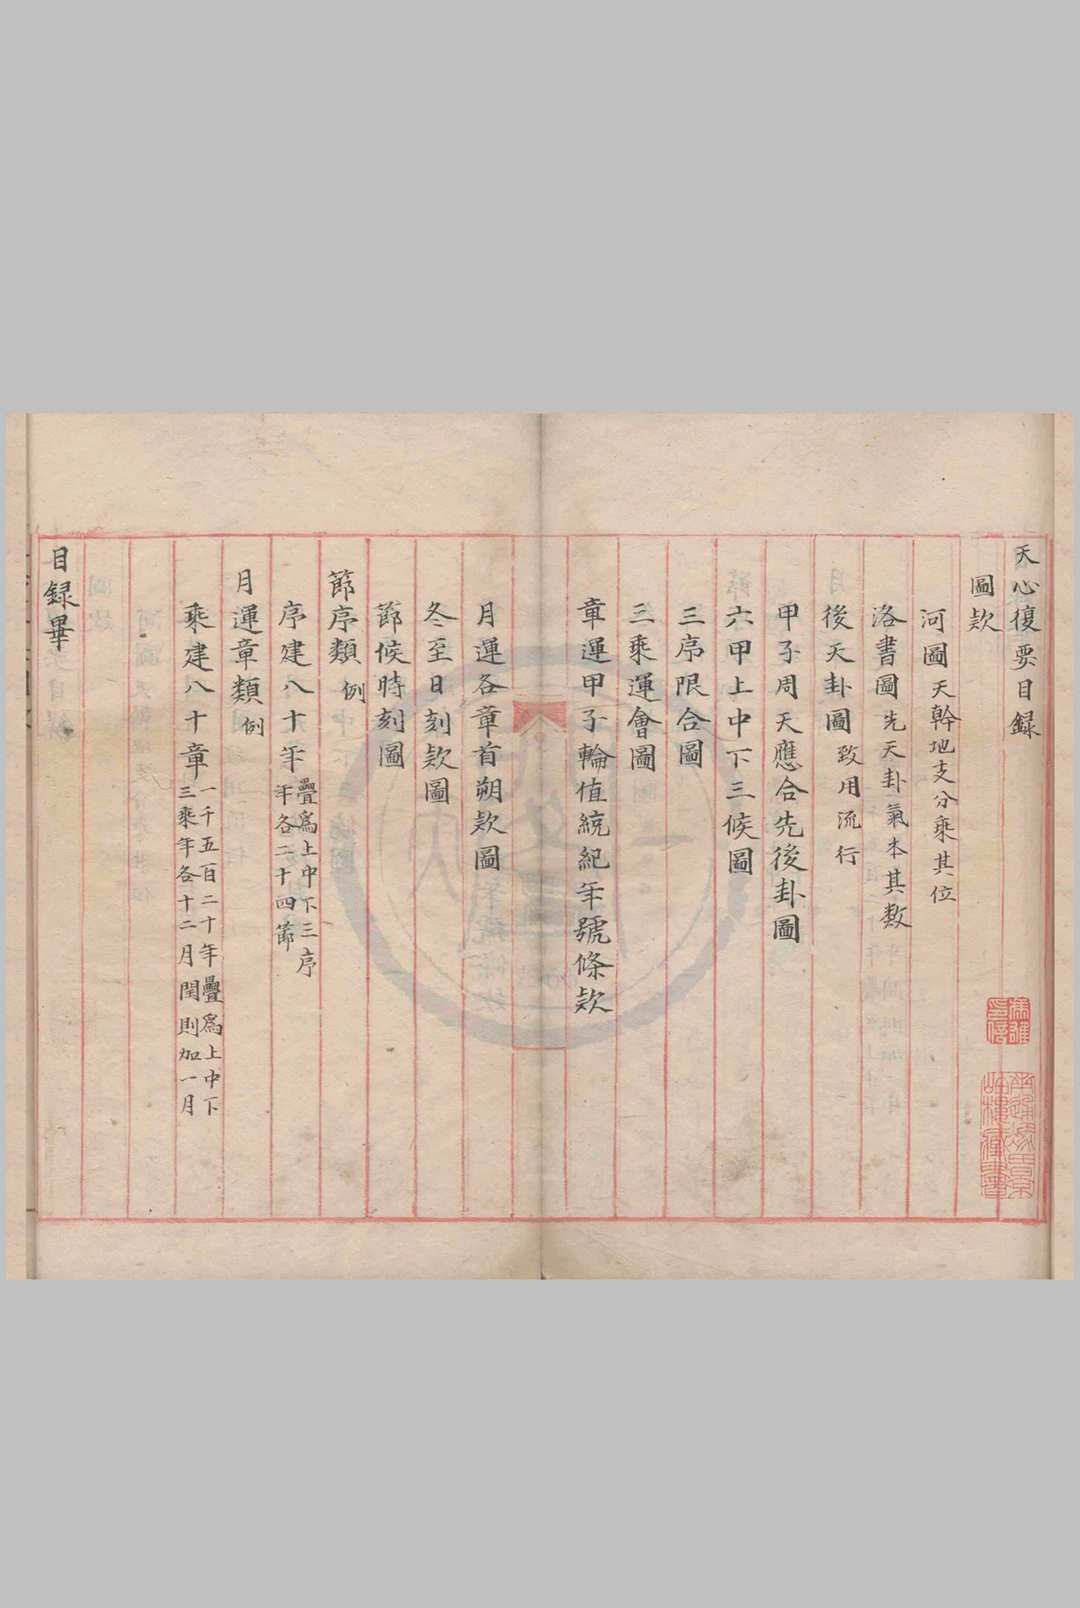 天心復要目録
圖欵
河圖天幹地支分乘其位
洛書圖先天卦氣本其數
後天卦圖致用流行
甲子周天應合先後卦圖
六甲上中下三候圖
三序限合圖
三乘運會圖
章運甲子輪值統紀年號條欵
月運各章首朔欵圖
冬至日刻欵圖
節候時刻圖
節序類例
序建八十年疊為上中下三序
年各二十四節
月運章類例
乘建八十章一千五百二十年疊為上中下
三乘年各十二月閏則加一月
目録畢